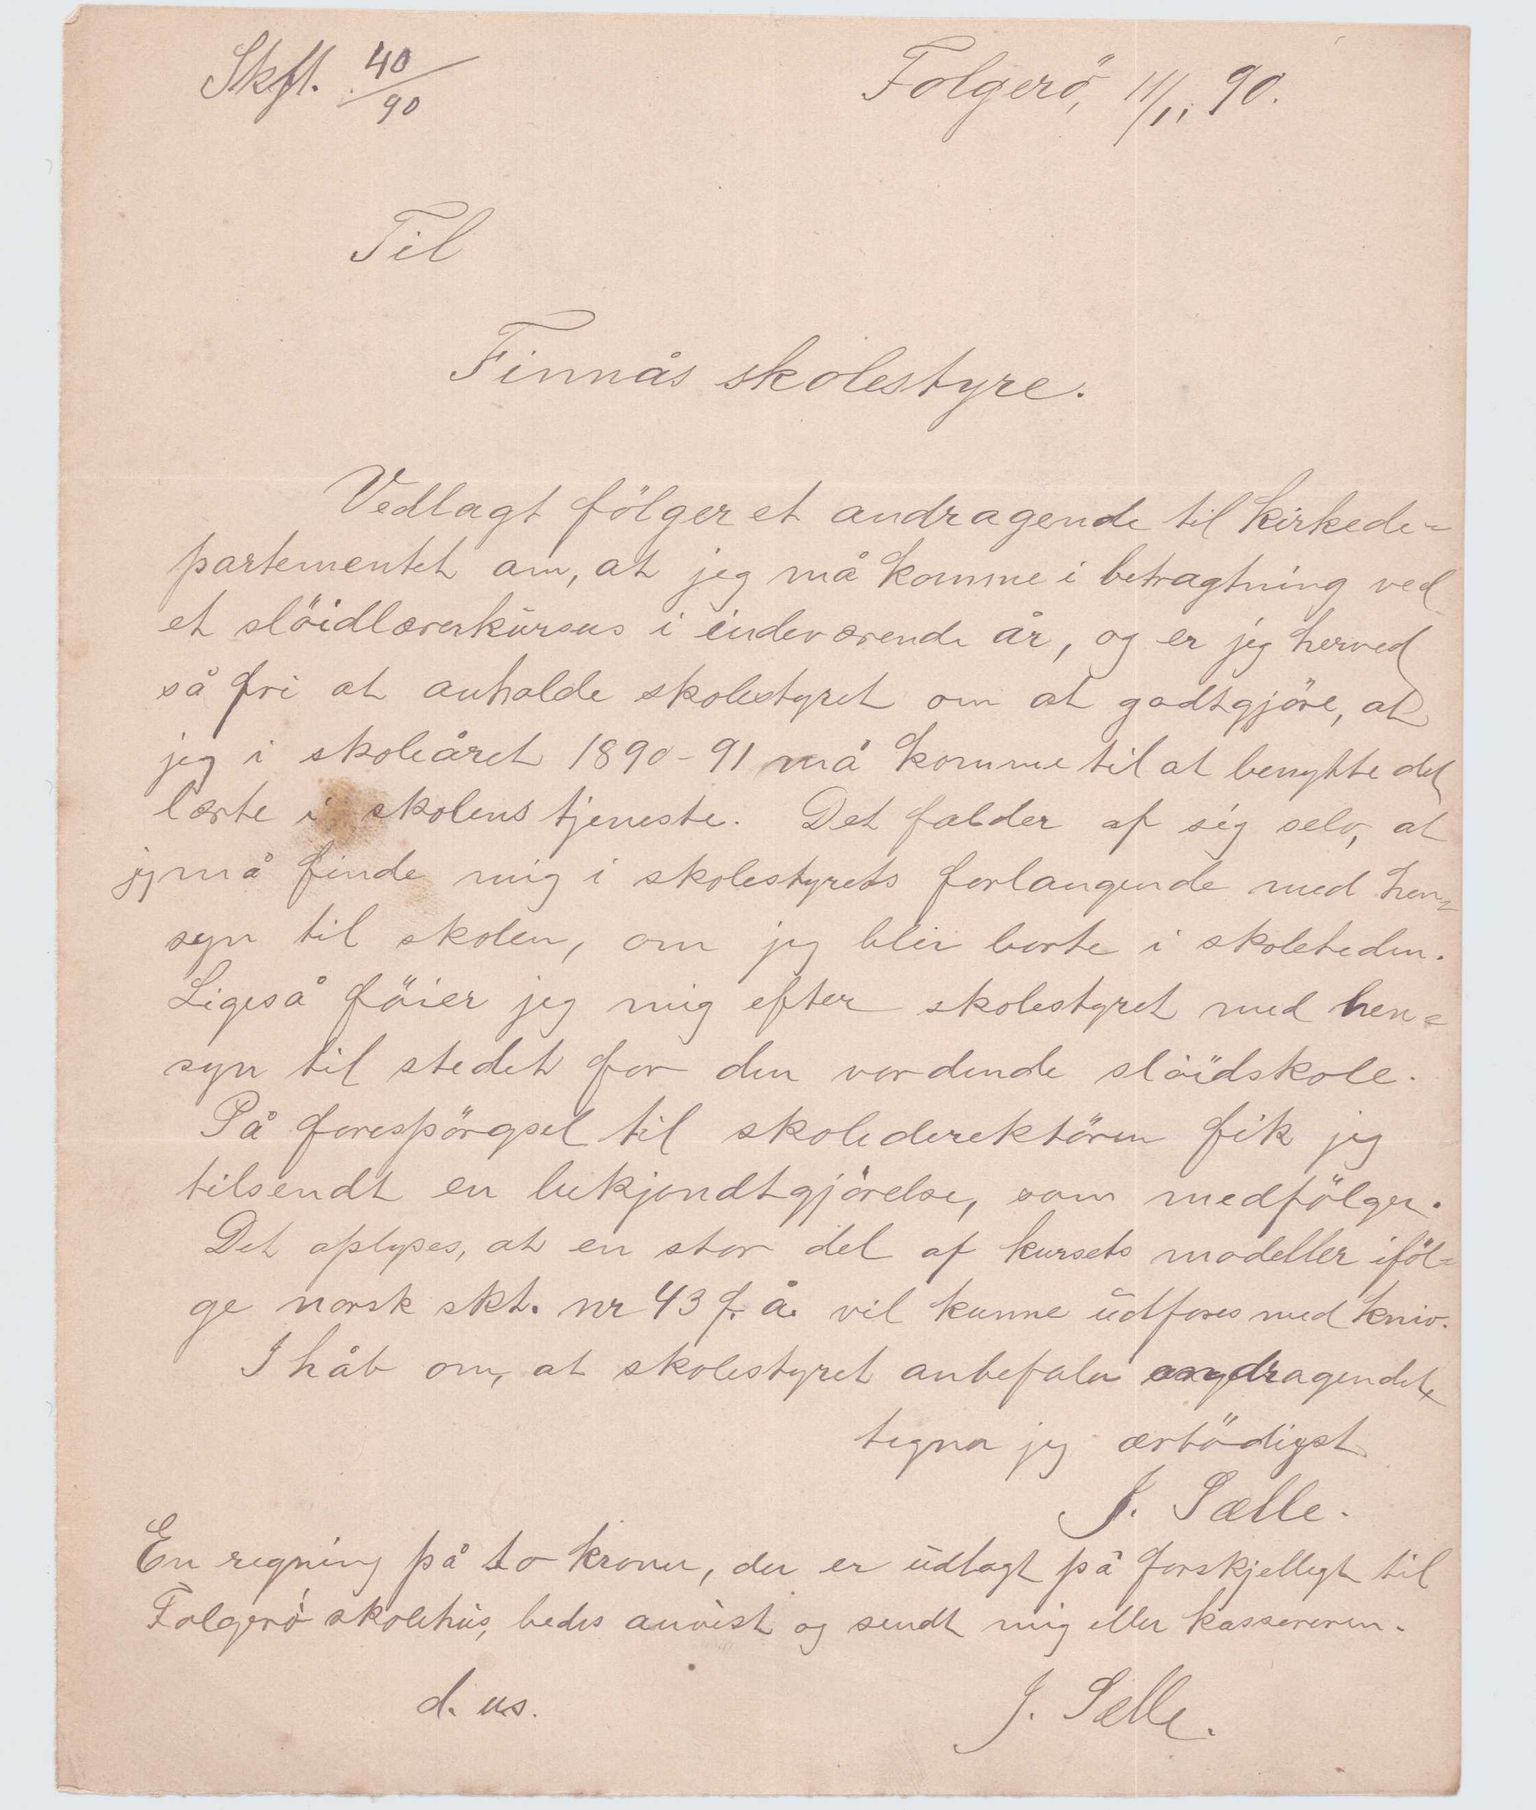 Skft. 40/90
Folgerö, 11/1. 90.
Til
Finnås skolestyre.
Vedlagt fölger et andragende til kirkede=
partementet om, at jeg må komme i betragtning ved
et slöidlærerkursus i indeværende år, og er jeg herved
så fri at anholde skolestyret om at godtgjöre, at
jeg i skoleåret 1890-91 må komme til at benytte det
lærte i skolens tjeneste. Det falder af sig selv, at
jeg må finde mig i skolestyrets forlangende med hen=
syn til skolen, om jeg blir borte i skoletiden.
Ligeså föier jeg mig efter skolestyret med hen=
syn til stedet for den vordende slöidskole.
På forespörgsel til skoledirektören fik jeg
tilsendt en bekjendtgjörelse, som medfölger.
Det oplyses, at en stor del af kursets modeller iföl=
ge norsk skt. nr 43 f. å. vil kunne udföres med kniv.
I håb om, at skolestyret anbefaler andragendet,
tegner jeg ærbödigst
J. Sælle.
En regning på to kroner, der er udlagt på forskjelligt til
Folgerö skolehus, bedes anvist og sendt mig eller kassereren.
d. us.
J. Sælle.